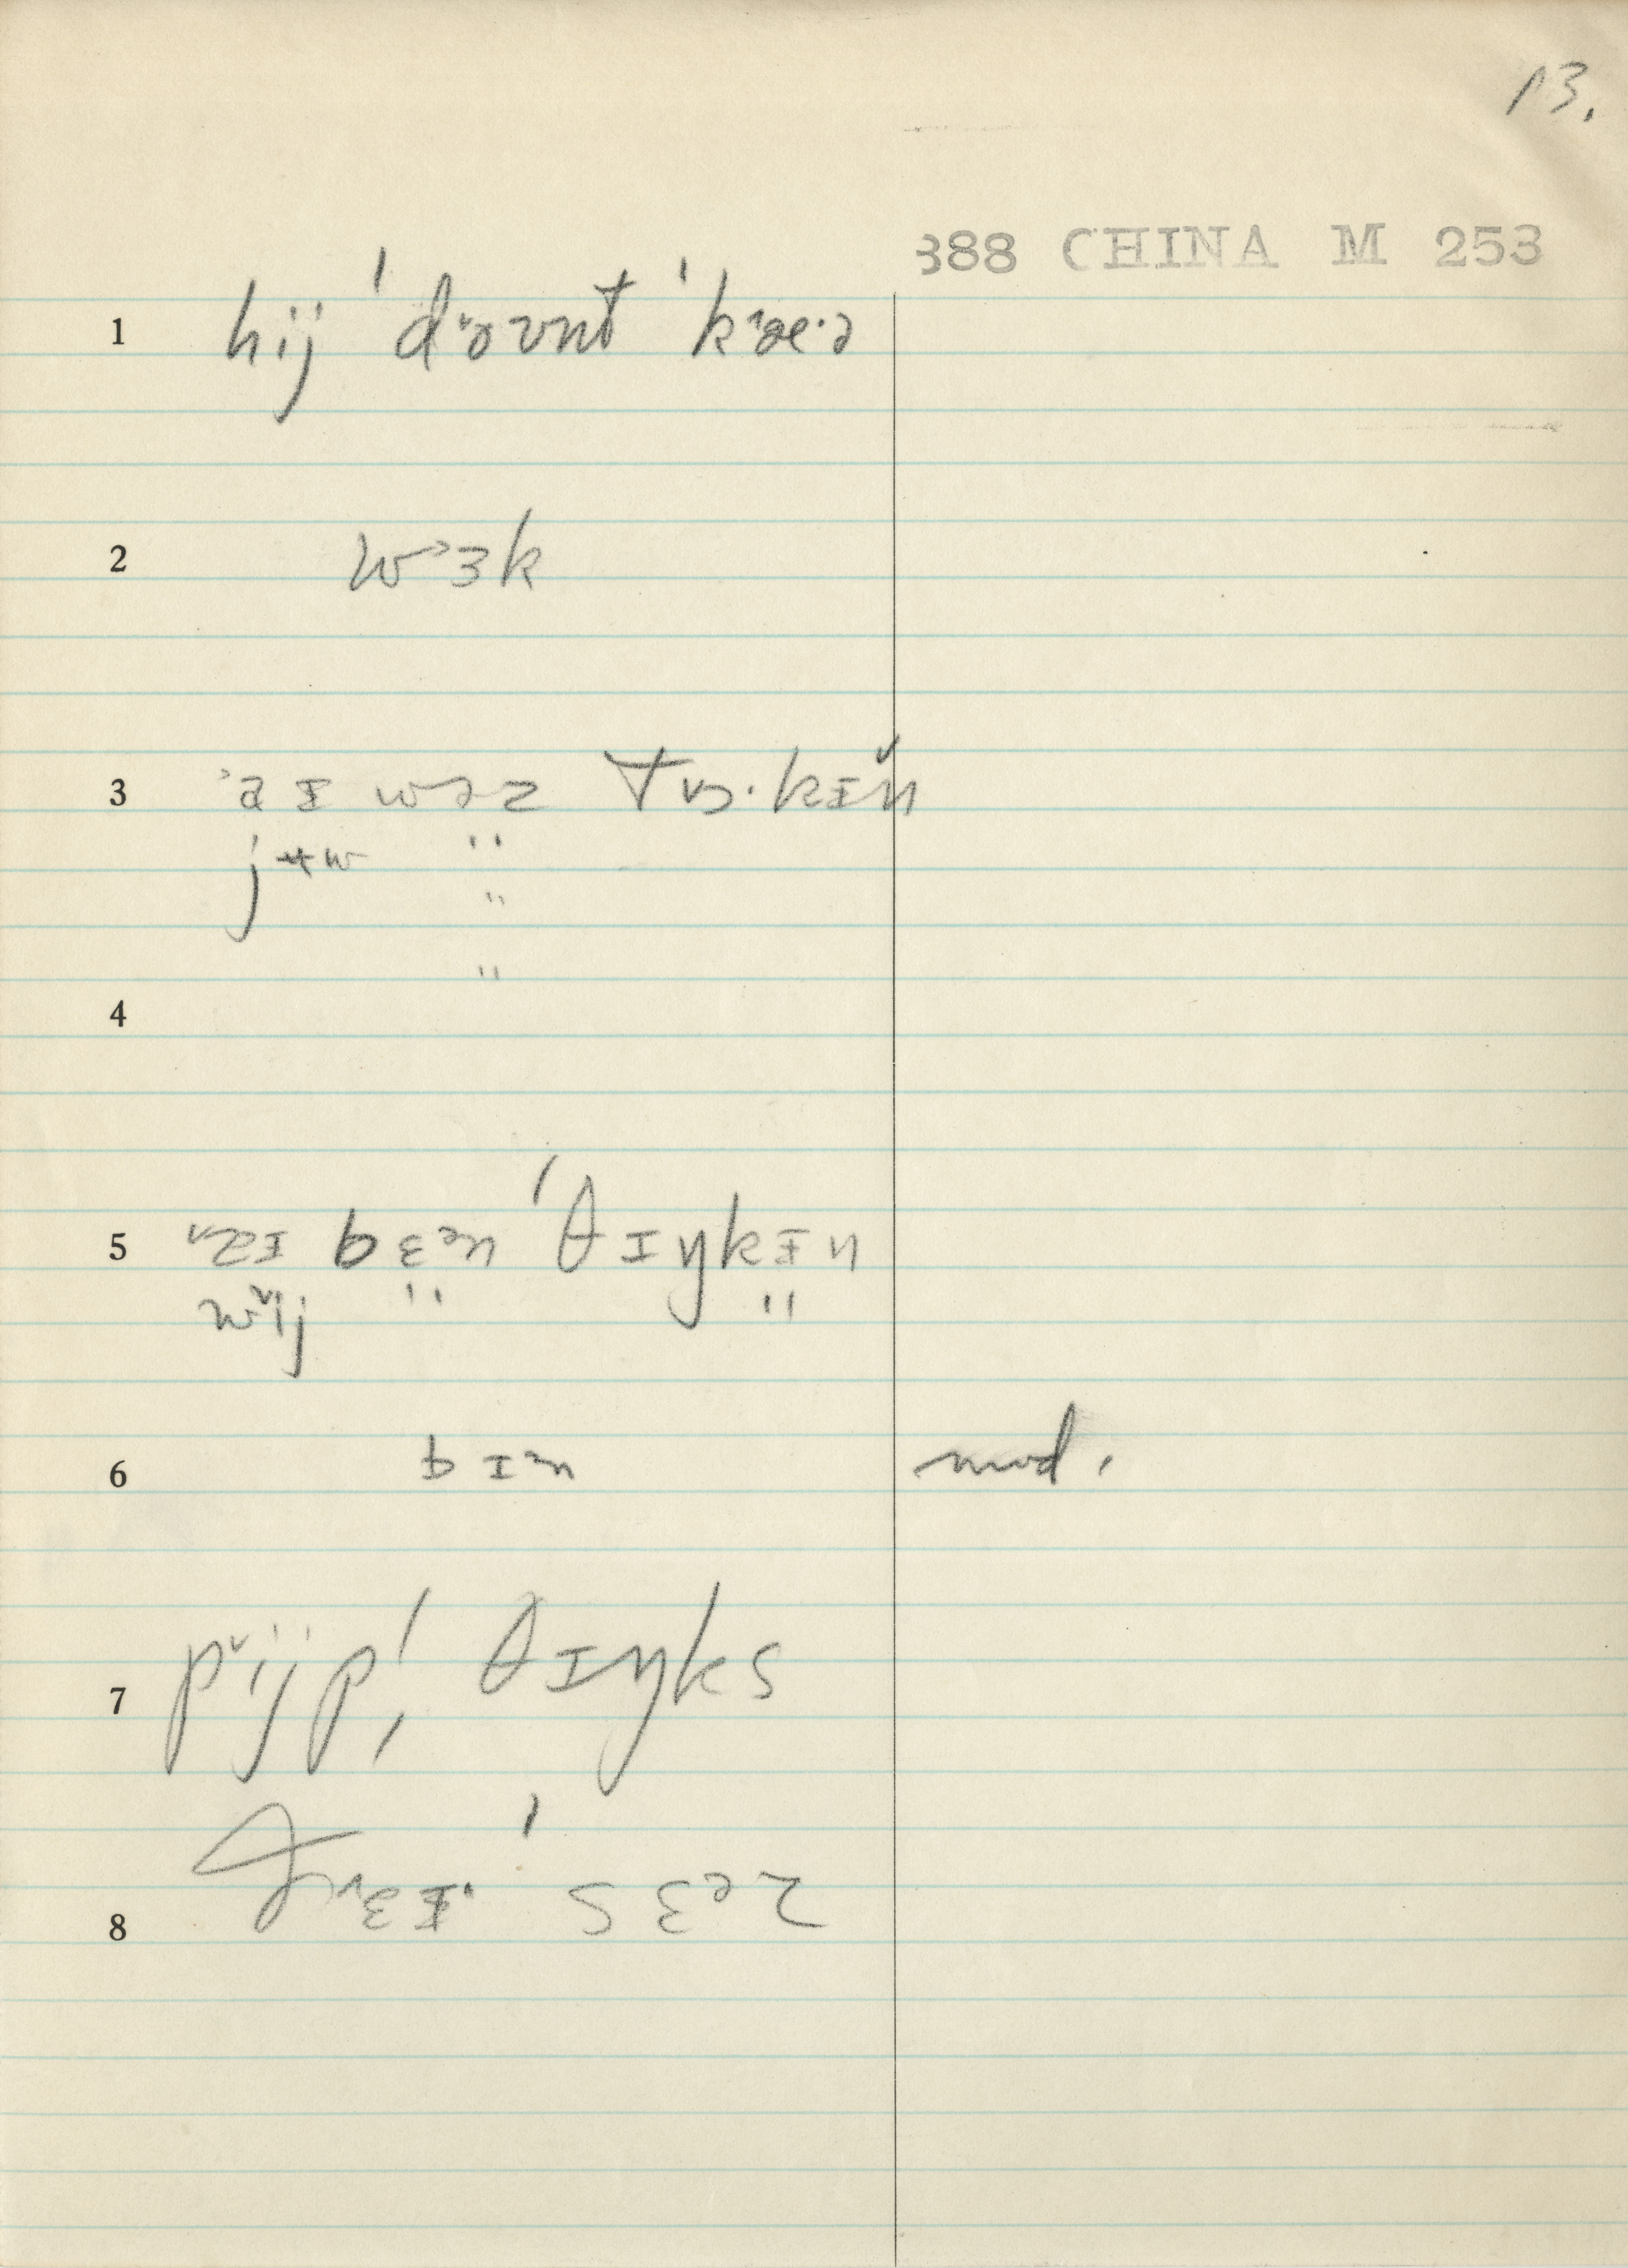 13.
388 CHINA M 253
1 hij ˈdɔʊnt ˈkæ·ə
2 wɜk
3 aɪ wəz tɒ·kɪn
jʉw "
"
"
4
5 bɛən ˈθɪŋkɪn
wij " "
6 bɪn mod.
7 pijp! θɪŋks
8 sɛəz